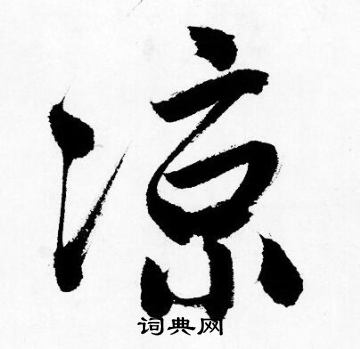 凉
词典网